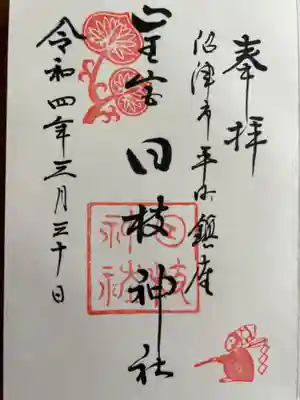 奉拝
沼津市平町鎮座
山王宮 日枝神社
日枝神社
令和四年三月三十日